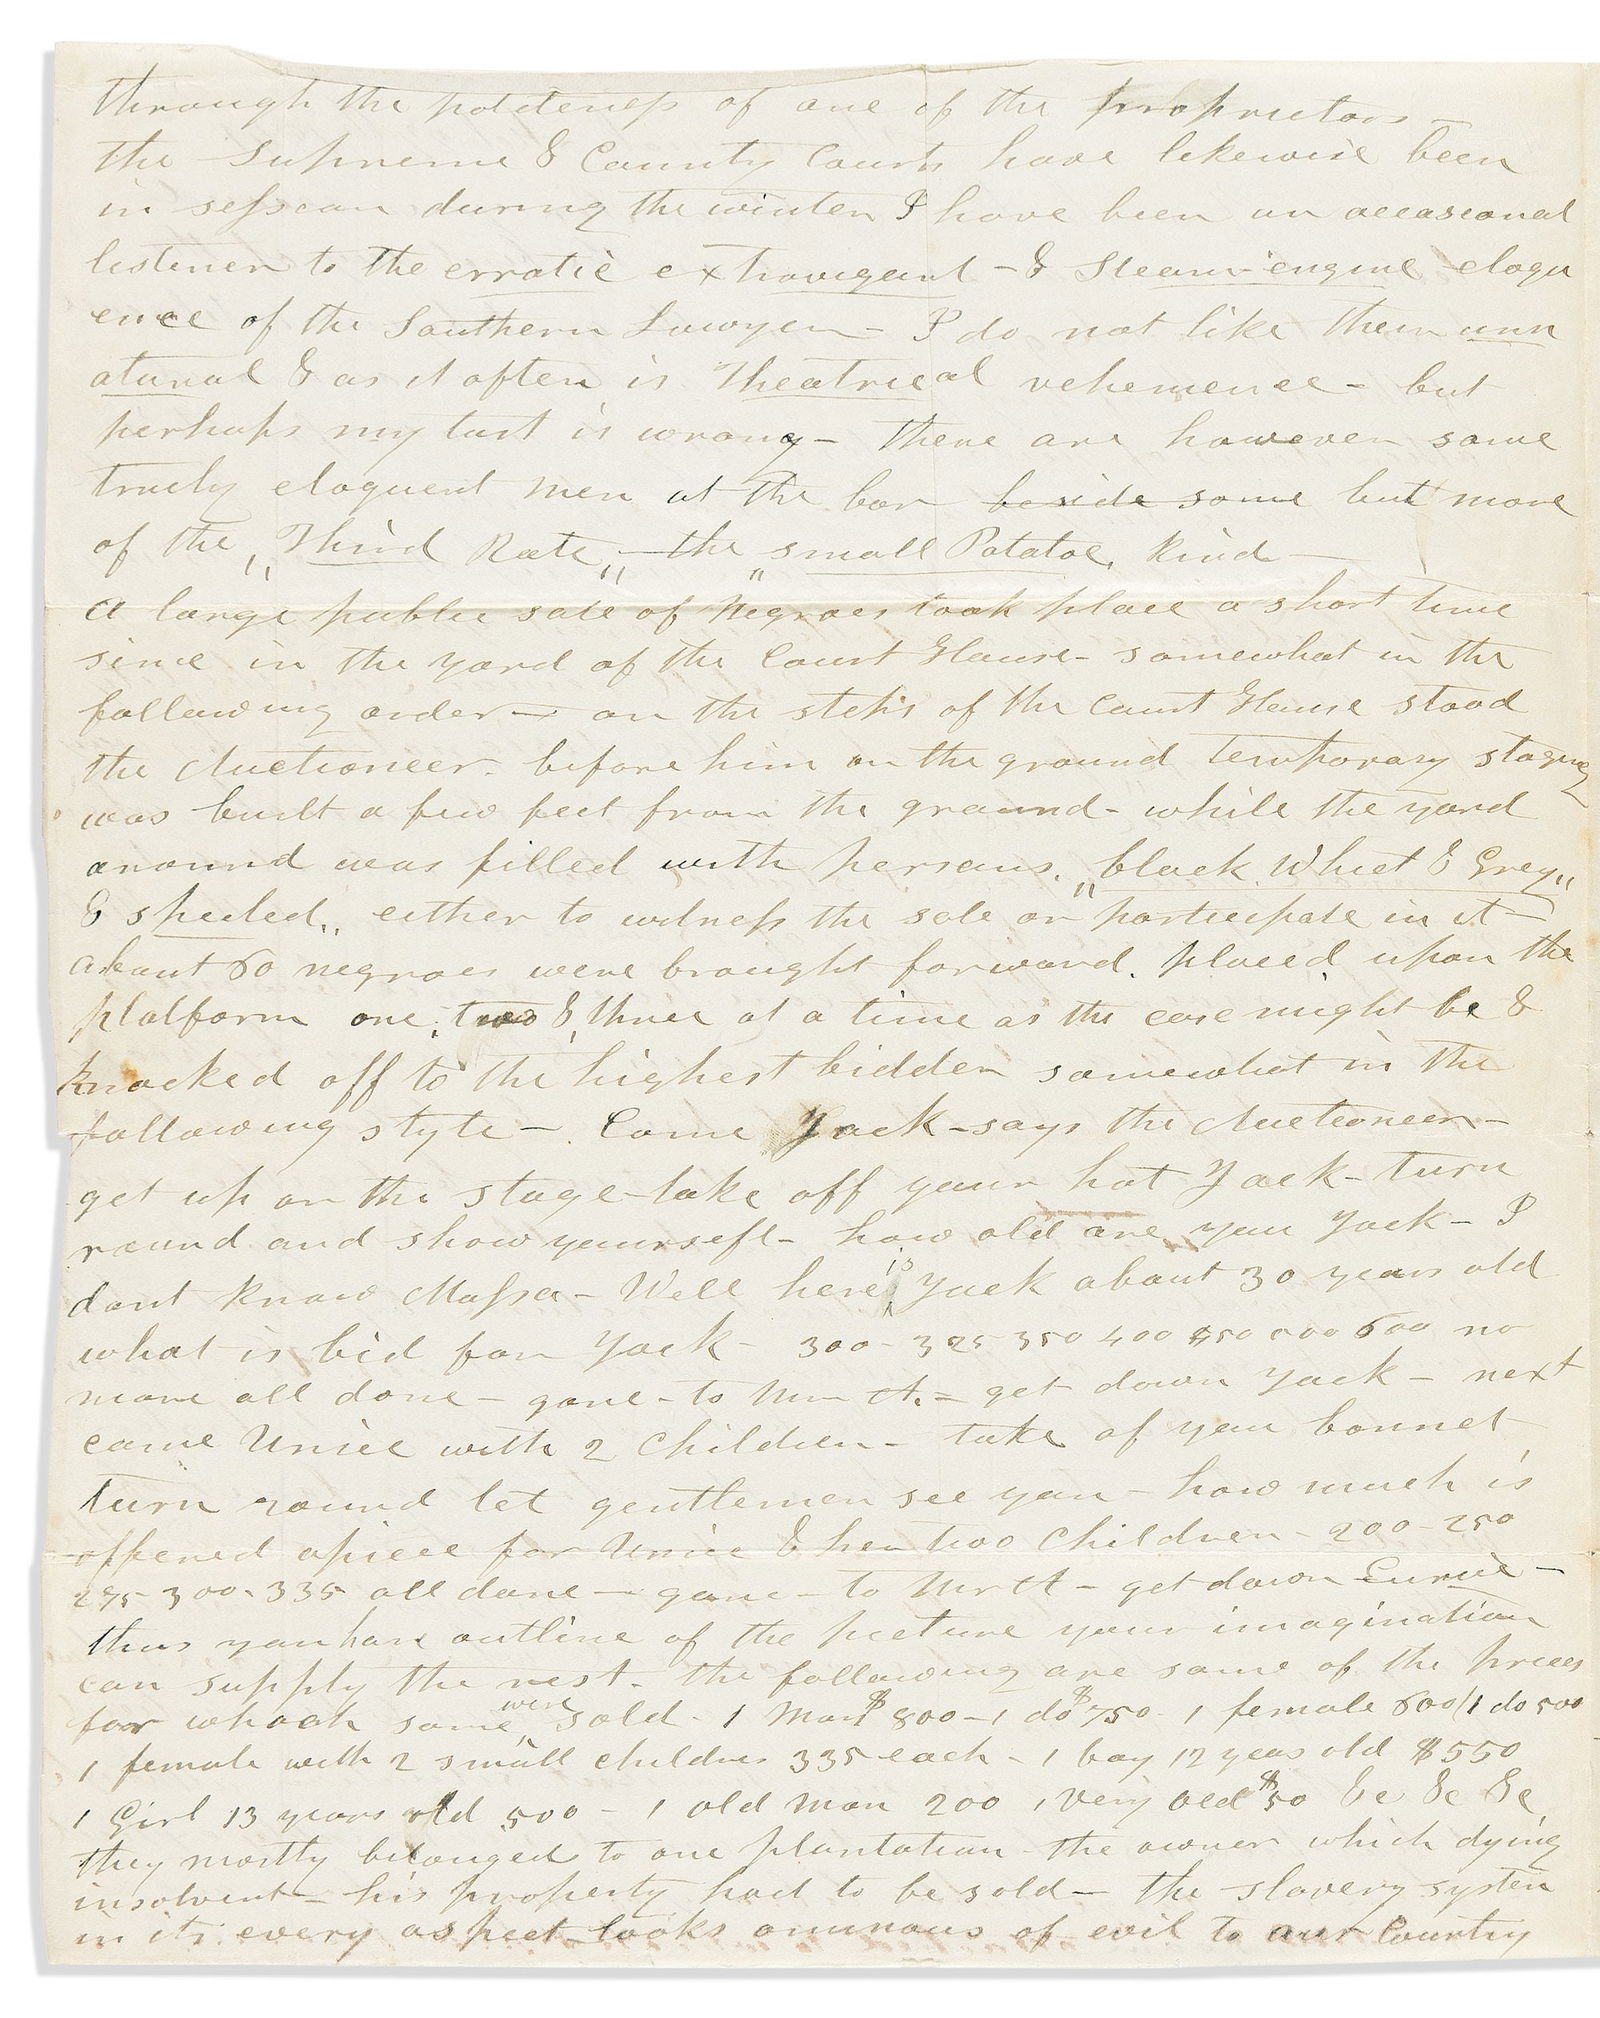 through the politeness of one of the proprietors —
the Supreme & County Courts have likewise been
in session during the winter I have been an occasional
listener to the erratic extravigant - & Steam-engine eloqu
ence of the Southern Lawyer - I do not like their unn
atural & as it often is Theatrical vehemence - but
perhaps my tast is wrong - there are however some
truely eloquent men at the bar beside some but more
of the „Third Rate„ - the „small Potatoe, kind —
A large public sale of Negroes took place a short time
since in the yard of the Court House - somewhat in the
following order — on the steps of the Court House stood
the Auctioneer. before him on the ground temporary staging
was built a few feet from the ground - while the yard
around was filled with persons. „black. Whiet & Grey„
& speeled„ either to witness the sale or participate in it —
about 60 negroes were brought forward. placed upon the
platform one, two & three at a time as the case might be &
knocked off to the highest bidder somewhat in the
following style - Come Jack - says the Auctioneer -
get up on the stage - take off your hat Jack - turn
round and show yourself - how old are you Jack - I
dont know Massa - Well here is Jack about 30 years old
what is bid for Jack - 300 - 325 350 400 450 500 600 no
more all done - gone - to Mr A. - get down Jack - next
came Unice with 2 Children - take of you bonnet
turn round let gentlemen see you - how much is
offered apiece for Unice & her two Children - 200 - 250
275 - 300 - 335 all done — gone - to Mr A - get down Eunice -
thus you have outline of the picture your imagination
can supply the rest. the following are some of the prices
for whoah some were sold - 1 Man $800 - 1 do $750 - 1 female 600 / 1 do 500
1 female with 2 small children 335 each - 1 boy 12 yeas old $550
1 Girl 13 years old 500 - 1 old man 200 1 very old $50 &c &c &c
they mostly belonged to one plantation - the owner which dying
insolvent - his property had to be sold - the slavery system
in its every aspect looks ominous of evil to our Country